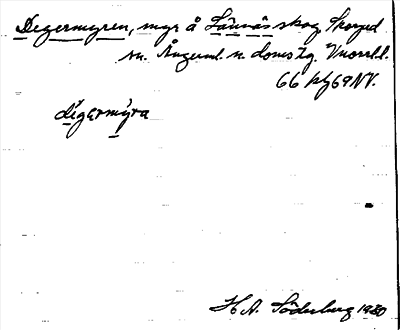 Degermyren, myr å Lännäs skog Skorped
sn. Ångerml. n. doms tg. Vnorrl. l.
66 kbl 69 NV.
degermyra
H A. Söderberg 1930